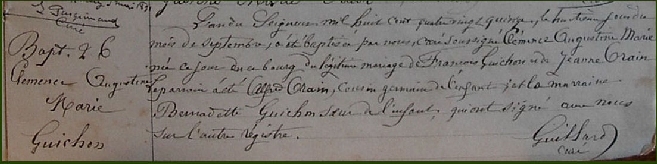 Curé
Bapt. 26
Clémence Augustine
Marie
Guichon
L'an du Seigneur mil huit cent quatre vingt quinze, le huitième jour du
mois de septembre, a été baptisée par nous, curé soussigné Clémence Augustine Marie
née ce jour en ce bourg du légitime mariage de François Guichon et de Jeanne Crain
Le parrain a été Alfred Crain, cousin germain de l'enfant, et la marraine
Bernadette Guichon sœur de l'enfant, qui ont signé avec nous
sur l'autre registre.
Guillard
Curé